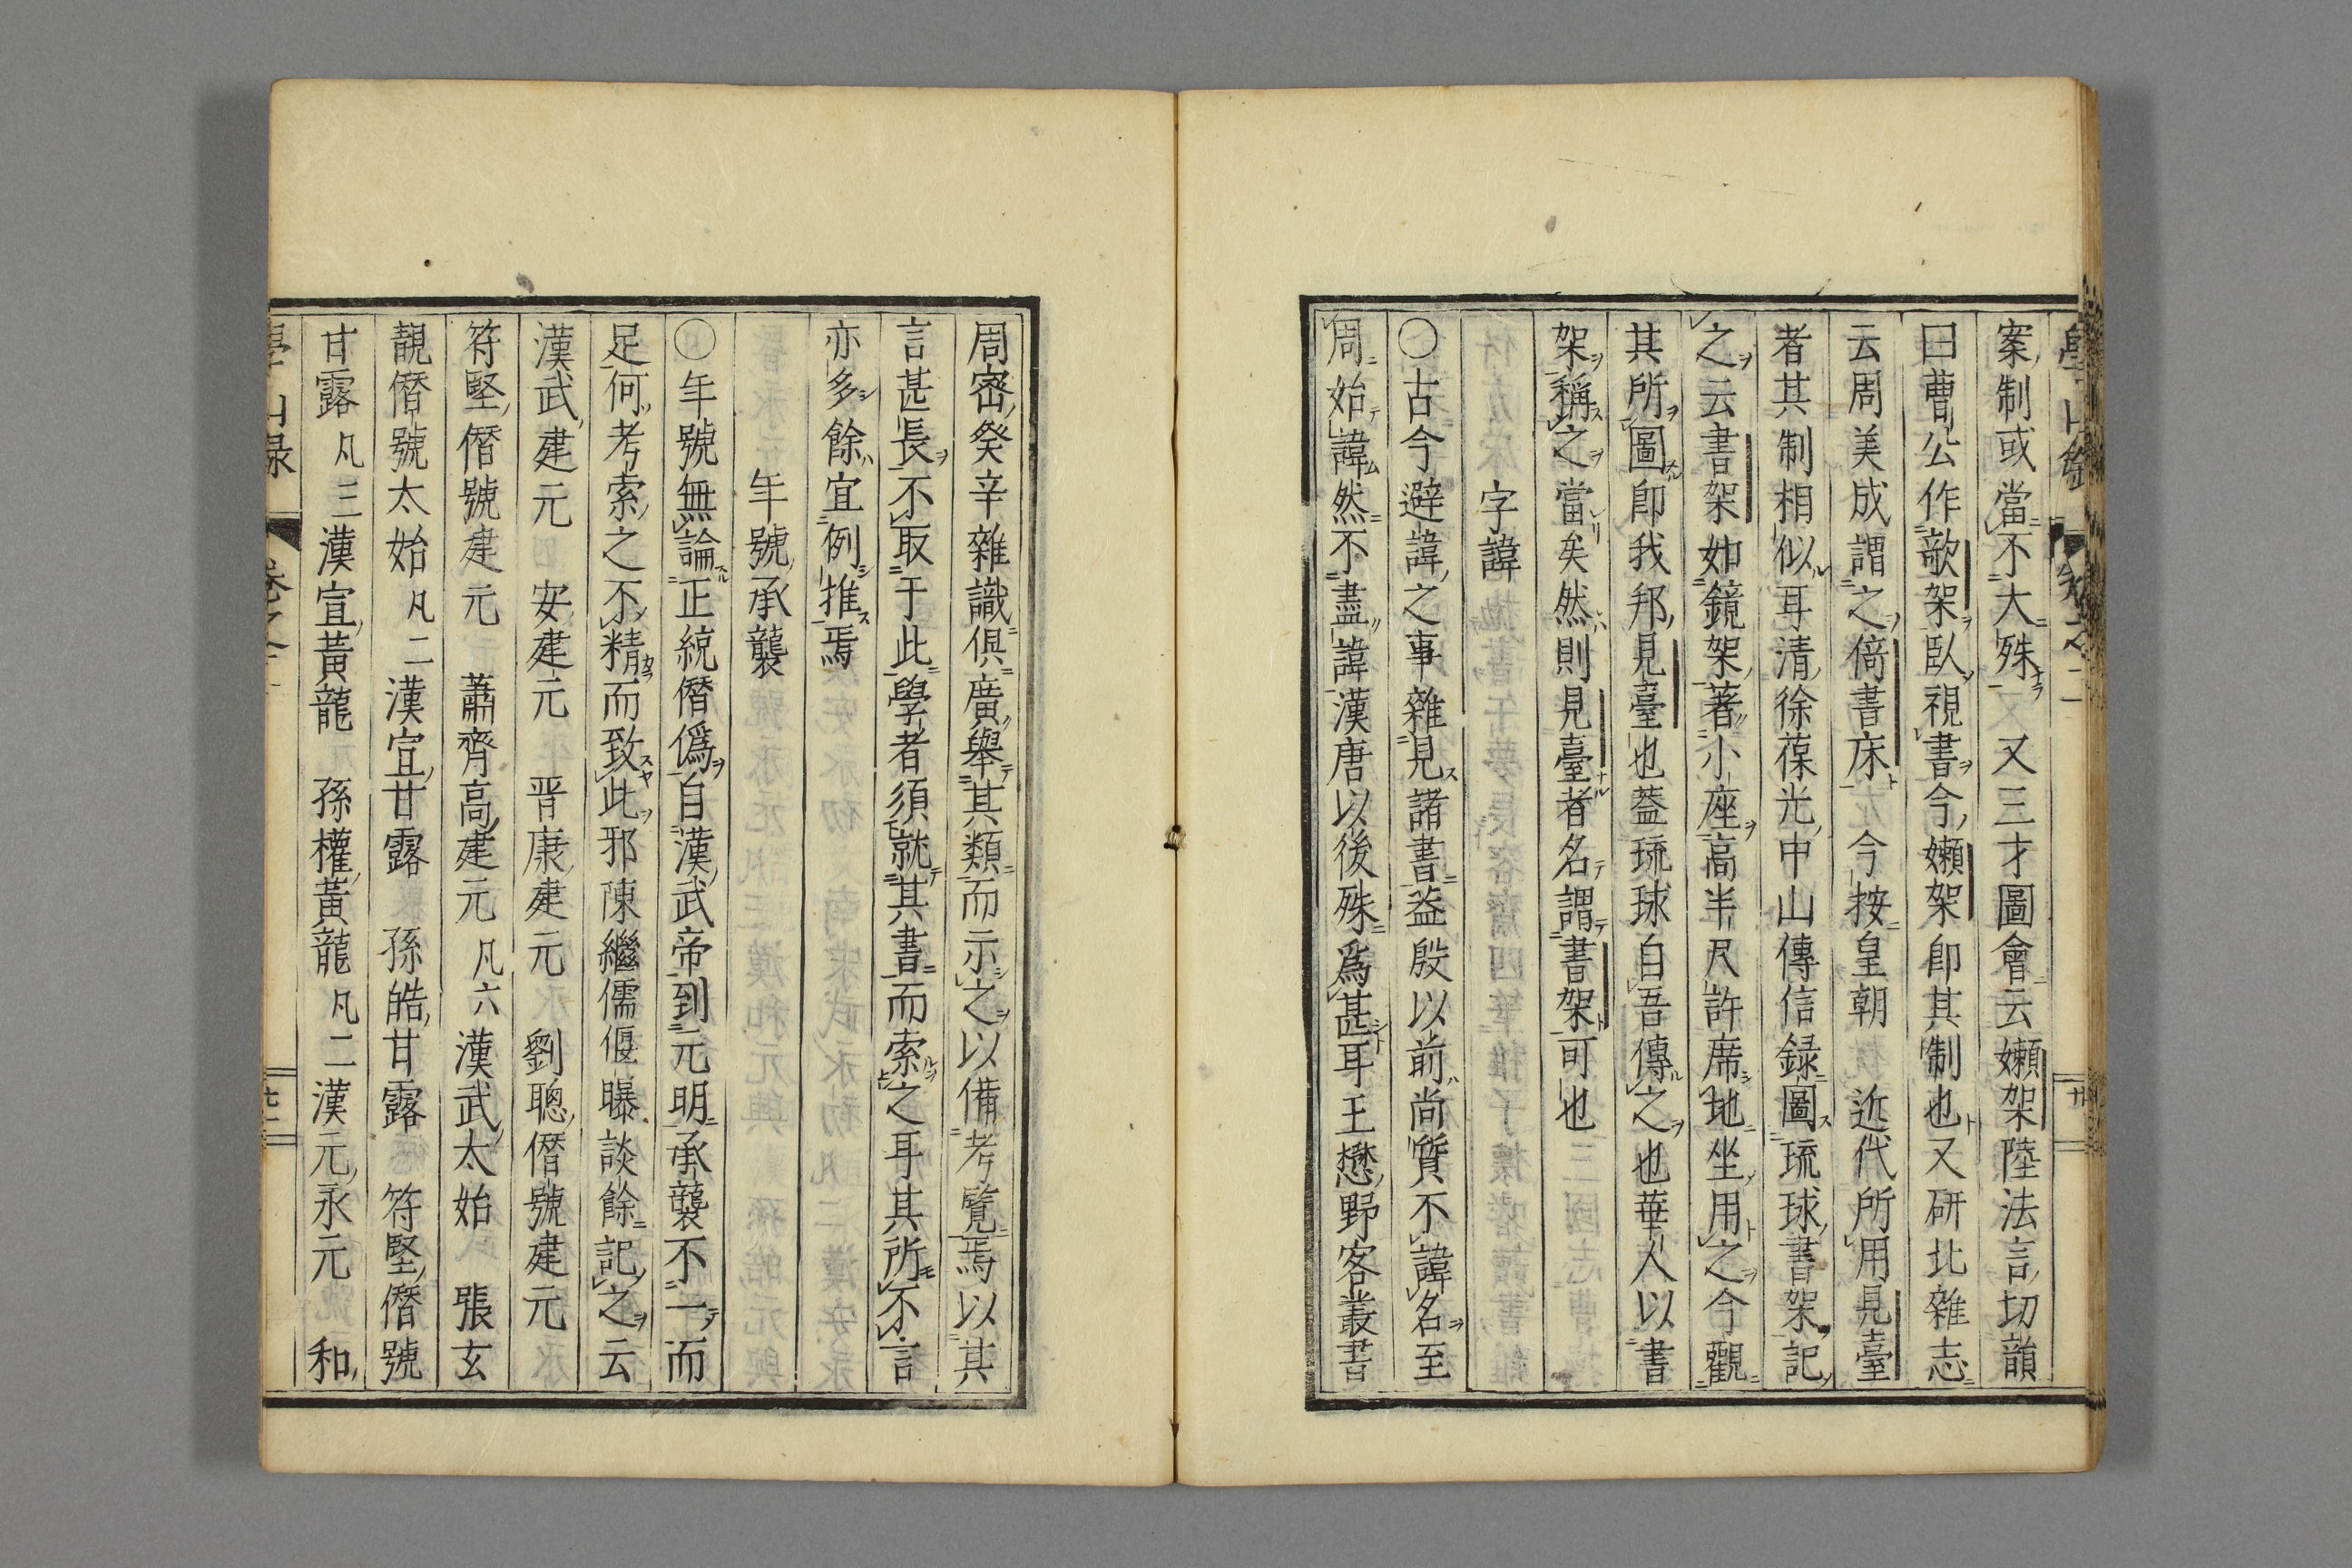 案制或當不大殊 又三才圖會云嬾架陸法言切韻
曰曹公作欹架臥視書今嬾架卽其制也又研北雜志
云周美成謂之倚書床 今按皇朝 近代所用見臺
者其制相似耳清徐葆光中山傳信録圖琉球書架記
之云書架如鏡架著小座高半尺許席地坐用之今觀
其所圖卽我邦見臺也蓋琉球自吾傳之也華人以書
架稱之當矣然則見臺者名謂書架可也
字諱
○古今避諱之事雜見諸書蓋殷以前尚質不諱名至
周始諱然不盡諱漢唐以後殊爲甚耳王楙野客叢書
周密癸辛雜識俱廣舉其類而示之以備考覽焉以其
言甚長不取于此學者須就其書而索之耳其所不言
亦多餘宜例推焉
年號承襲
○年號無論正統僭僞自漢武帝到元明承襲不一而
足何考索之不精而致此邪陳繼儒偃曝談餘記之云
漢武建元 安建元 晋康建元 劉聰僭號建元
符堅僭號建元 蕭齊高建元凡六漢武太始 張玄
靚僭號太始凡二漢宣甘露 孫皓甘露 符堅僭號
甘露凡三漢宣黃龍 孫權黃龍凡二漢元永元 和